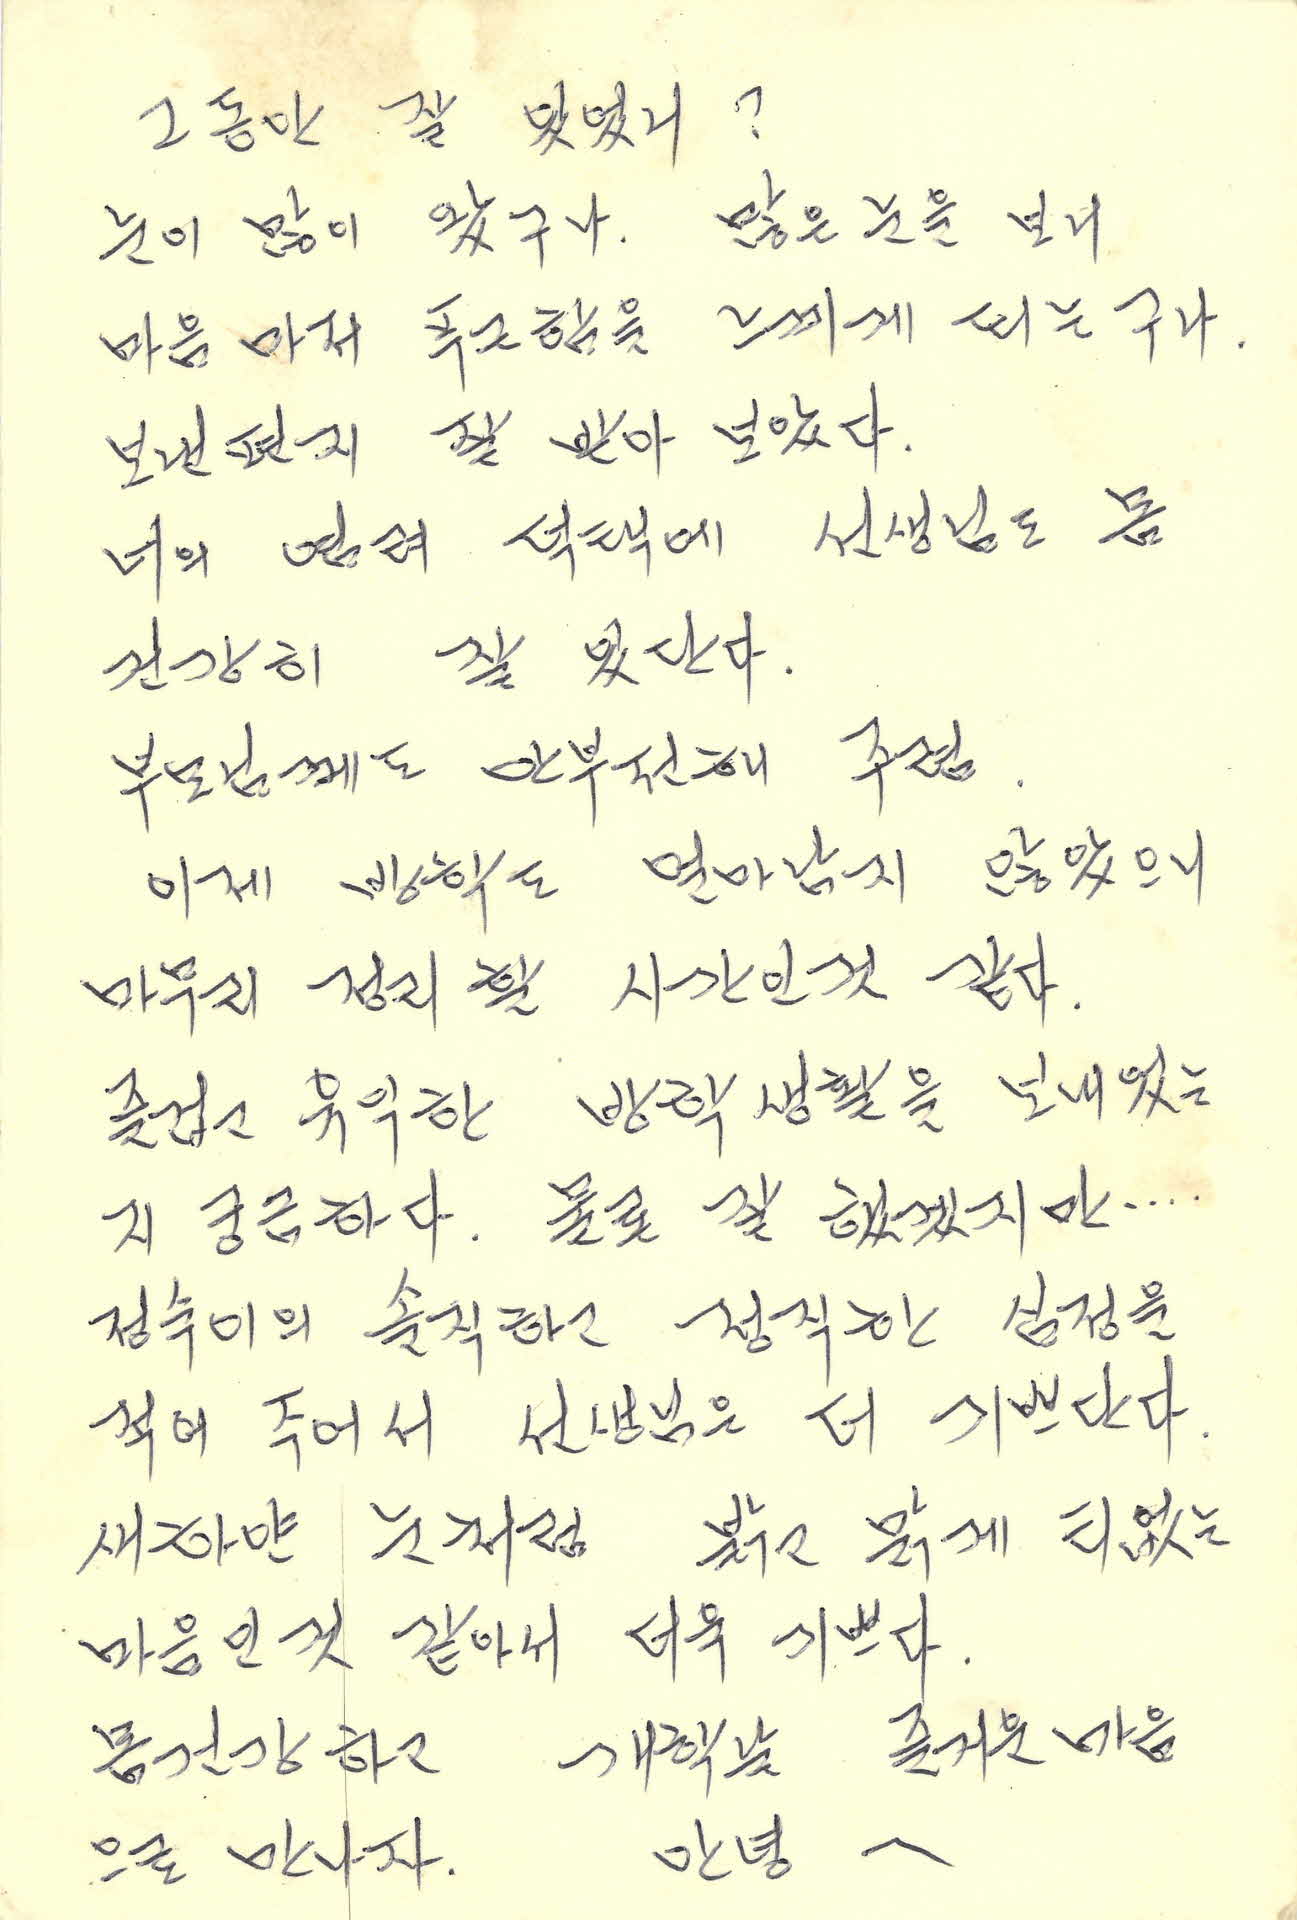 그동안 잘 있었니?
눈이 많이 왔구나. 많은 눈을 보니
마음 마저 푸근함을 느끼게 되는구나.
보낸편지 잘 받아 보았다.
너의 염려 덕택에 선생님도 몸
건강히 잘 있단다.
부모님께도 안부전해 주렴.
이제 방학도 얼마남지 않았으니
마무리 정리할 시간인것 같다.
즐겁고 유익한 방학생활을 보내었는
지 궁금하다. 물론 잘 했겠지만....
정숙이의 솔직하고 정직한 심정을
적어 주어서 선생님은 더 기쁘단다.
새하얀 눈처럼 밝고 맑게 티없는
마음인것 같아서 더욱 기쁘다.
몸건강하고 개학날 즐거운마음
으로 만나자. 안녕 ~